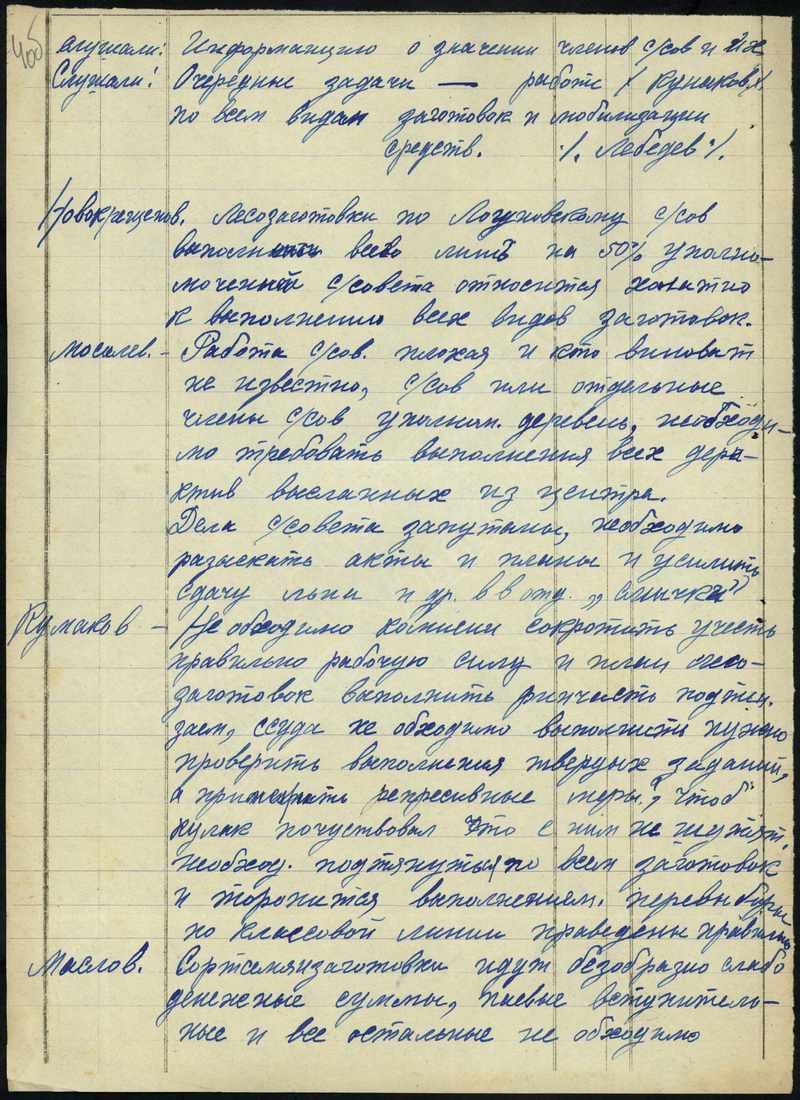 406
слушали: Информацию о значении членов с/сов и их
Слушали! Очередные задачи — работе /Кумаков/.
по всем видам заготовок и мобилизации
средств. /. Лебедев /.
Новокрещенов. Лесозаготовки по Логуновскому с/сов
выполнены всего лишь на 50% уполно-
моченный с/совета относится халатно
к выполнению всех видов заготовок.
Мосалев. – Работа с/сов. плохая и кто виноват
не известно, с/сов или отдельные
члены с/сов уполном. деревень, необходи-
мо требовать выполнения всех дере-
ктив высланных из центра.
Дела с/совета запутаны, необходимо
разыскать акты и планы и усилить
сдачу льна и др. в в отд. „смычка"
Кумаков – Не обходимо комисии сократить учесть
правильно рабочую силу и план лесо-
заготовок выполнить
заем, ссуда не обходимо выполнить нужно
проверить выполнения твердых заданий,
а применять репресивные меры, чтоб
кулак почуствовал что с ним не шутят,
необход. подтянуться по всем заготовок
и торопится выполнением. перевыборы
по классовой линии праведены правильно
Маслов. идут безобразно слабо
денежные суммы, паевые вступитель-
ные и все остальные не обходимо